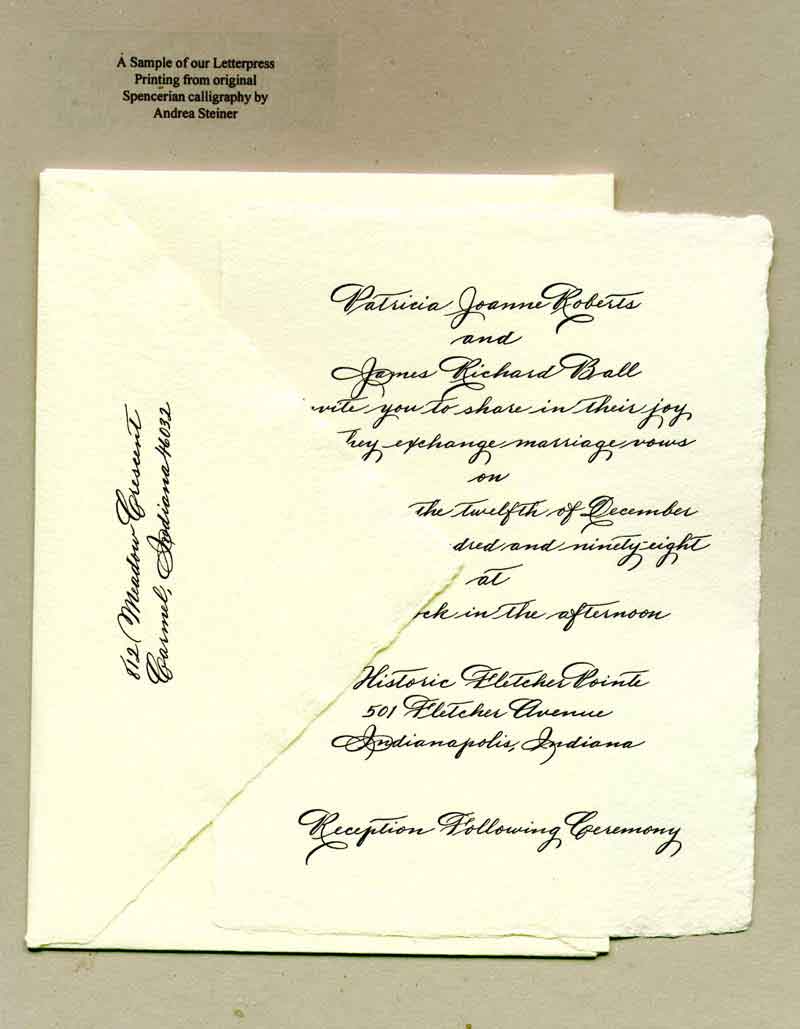 A Sample of our Letterpress
Printing from original
Spencerian calligraphy by
Andrea Steiner
Patricia Joanne Roberts
and
James Richard Ball
vite you to share in their joy
hey exchange marriage vows
on
the twelfth of December
dred and ninety-eight
at
ck in the afternoon
Historic Fletcher Pointe
501 Fletcher Avenue
Indianapolis, Indiana
Reception Following Ceremony
812 Meadow Crescent
Carmel, Indiana 46032